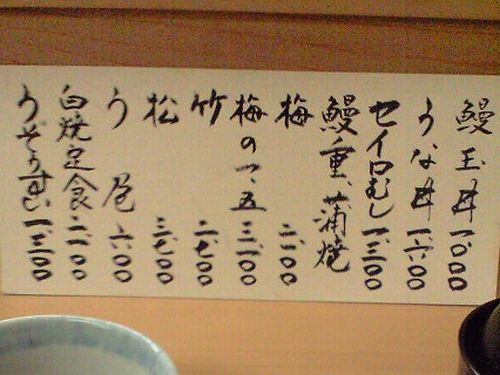 鰻玉丼 一、〇〇〇
うな丼 一、六〇〇
セイロむし 一、三〇〇
鰻重、蒲焼
梅 二、一〇〇
梅の一、五 三、一〇〇
竹 二、七〇〇
松 三、七〇〇
う 六〇〇
白焼定食 二、一〇〇
うぞうすい 一、三〇〇